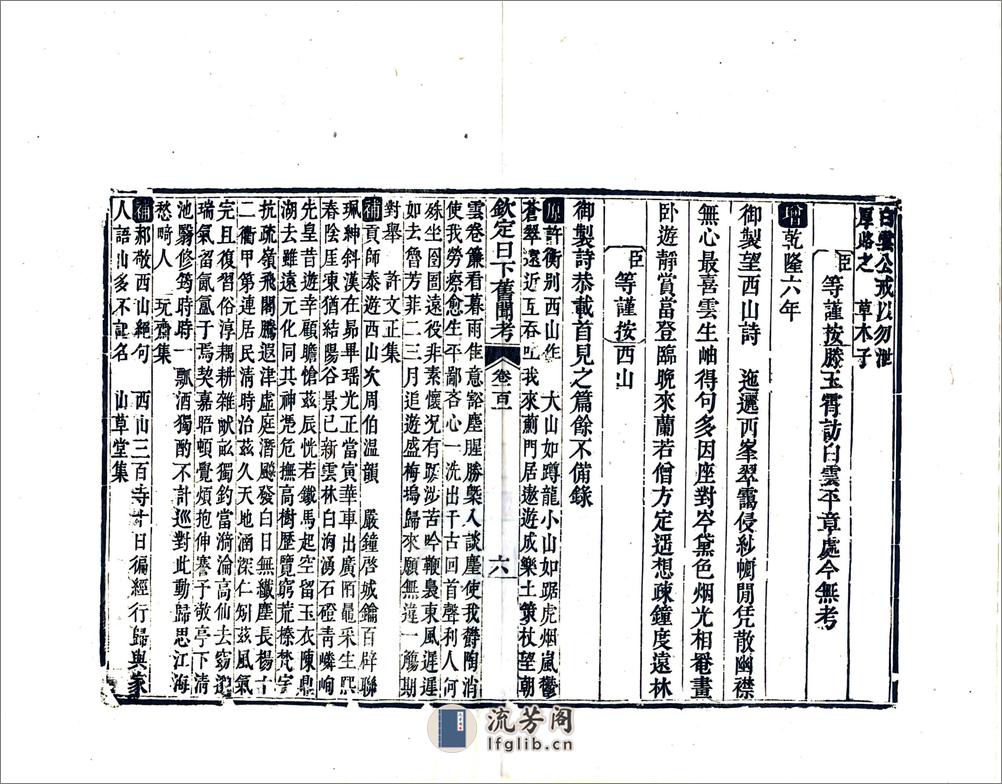 白雲公戒以勿泄
厚賂之　草木子
臣等謹按滕玉霄訪白雲平章處今無考
增乾隆六年
御製望西山詩　迤邐西峯翠靄侵紗㡡閒凭散幽襟
無心最喜雲生岫得句多因座對岑黛色烟光相罨畫
卧遊靜賞當登臨晚來蘭若僧方定遥想疎鐘度遠林
臣等謹按西山
御製詩恭載首見之篇餘不備錄
原許衡别西山作　大山如蹲龍小山如踞虎烟嵐鬱
蒼翠遠近互吞吐我來薊門居遨遊成樂土策杖望朝
欽定日下舊聞考　卷一百一　六
雲卷簾看暮雨佳意豁塵腥勝槩入談麈使我鬱陶消
使我勞瘵愈生平鄙吝心一洗出千古回首聲利人何
殊坐囹圄遠役非素懷况有跋涉苦吟鞭裊東風遲遲
如去魯芳菲二三月追遊盛梅塢歸來願無違一觴期
對舉　許文正集
補貢師泰遊西山次周伯温韻　嚴鐘啓城鑰百辟聯
珮紳斜漢在昴畢瑶光正當寅華車出廣陌鼂采生熙
春陰厓凍猶結陽谷景已新雲林白洶湧石磴青嶙峋
先皇昔遊幸顧瞻愴茲辰恍若鐵馬起空留玉衣陳鼎
湖去雖遠元化同其神凳危撫高樹歷覽窮荒榛梵宇
抗疏嶺飛閣騰遐津虛庭潛颸發白日無纖塵長楊十
二衢甲第連居民清時治茲久天地涵深仁矧茲風氣
完且復習俗淳耦耕雜畎畝獨釣當漪淪高仙去窈邈
瑞氣留氤氲于焉契嘉晤頓覺煩抱伸謇予敬亭下清
池翳修筠時時一瓢酒獨酌不計巡對此動歸思江海
愁畸人　玩齋集
補郝敬西山絶句　西山三百寺十日徧經行歸與家
人語山多不記名　山草堂集
流芳阁
lfglib.cn